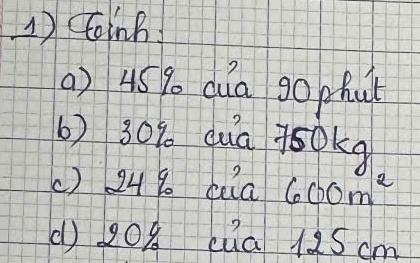 1) Tính:
a) 45% của 90 phút
b) 30% của 750kg
c) 24% của 600m²
d) 20% của 125 cm